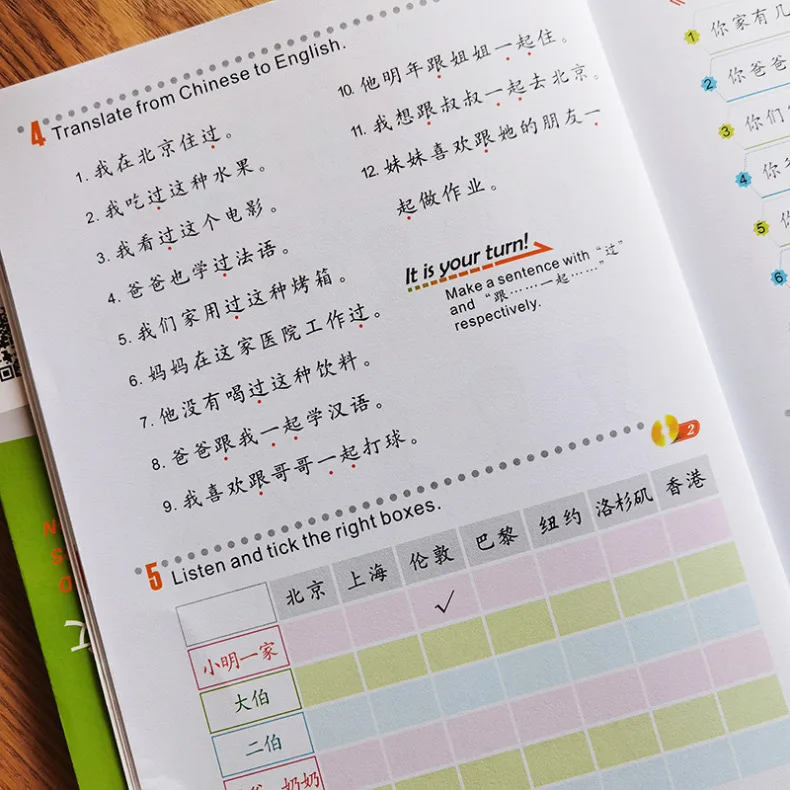 4 Translate from Chinese to English.
1. 我在北京住过。
2. 我吃过这种水果。
3. 我看过这个电影。
4. 爸爸也学过法语。
5. 我们家用过这种烤箱。
6. 妈妈在这家医院工作过。
7. 他没有喝过这种饮料。
8. 爸爸跟我一起学汉语。
9. 我喜欢跟哥哥一起打球。
10. 他明年跟姐姐一起住。
11. 我想跟叔叔一起去北京。
12. 妹妹喜欢跟她的朋友一
起做作业。
It is your turn!
Make a sentence with “过”
and “跟……一起……”
respectively.
2
5 Listen and tick the right boxes.
北京 上海 伦敦 巴黎 纽约 洛杉矶 香港
✓
小明一家
大伯
二伯
奶奶
1 你家有几
2 你爸爸
3 你们
4 你
5 你
6